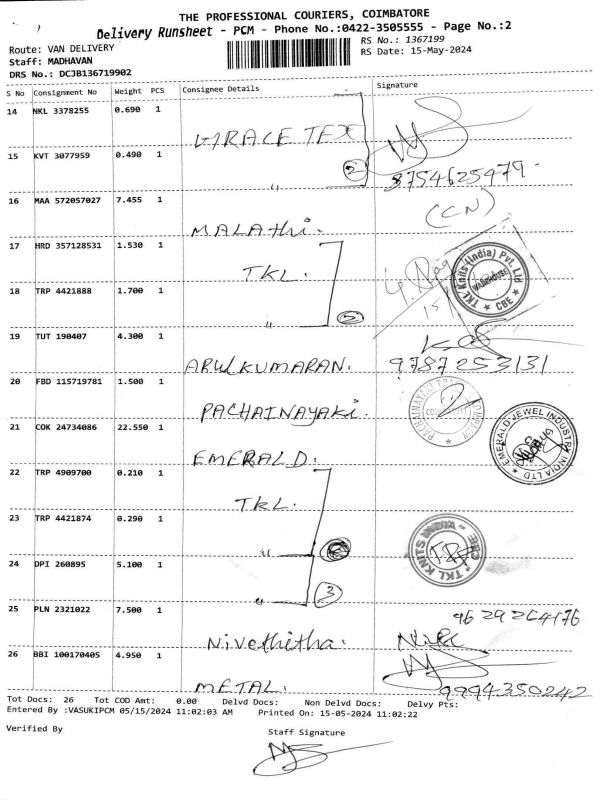 THE PROFESSIONAL COURIERS, COIMBATORE
Delivery Runsheet - PCM - Phone No.:0422-3505555 - Page No.:2
Route: VAN DELIVERY
RS No.: 1367199
Staff: MADHAVAN
RS Date: 15-May-2024
DRS No.: DCJB136719902
S No Consignment No Weight PCS Consignee Details Signature
14 NKL 3378255 0.690 1
VIRACE TEX
15 KVT 3077959 0.490 1
2
" 8754625479
16 MAA 572057027 7.455 1
(CN)
MALAthi.
17 HRD 357128531 1.530 1
TKL.
TKL Knits (India) Pvt. Ltd
WAREHOUSE
★ CBE ★
18 TRP 4421888 1.700 1
15
"
19 TUT 190407 4.300 1
ARULKUMARAN. 9787253131
20 FBD 115719781 1.500 1
PACHAINAYAKI.
21 COK 24734086 22.550 1
EMERALD.
EMERALD JEWEL INDUSTRY INDIA LTD ★
22 TRP 4909700 0.210 1
TKL.
23 TRP 4421874 0.290 1
"
TKL KNITS INDIA - CBE ★
24 DPI 260895 5.100 1
3
"
25 PLN 2321022 7.500 1
9629264176
Nivethitha.
26 BBI 100170405 4.950 1
METAL. 9994350242
Tot Docs: 26 Tot COD Amt: 0.00 Delvd Docs: Non Delvd Docs: Delvy Pts:
Entered By :VASUKIPCM 05/15/2024 11:02:03 AM Printed On: 15-05-2024 11:02:22
Verified By
Staff Signature